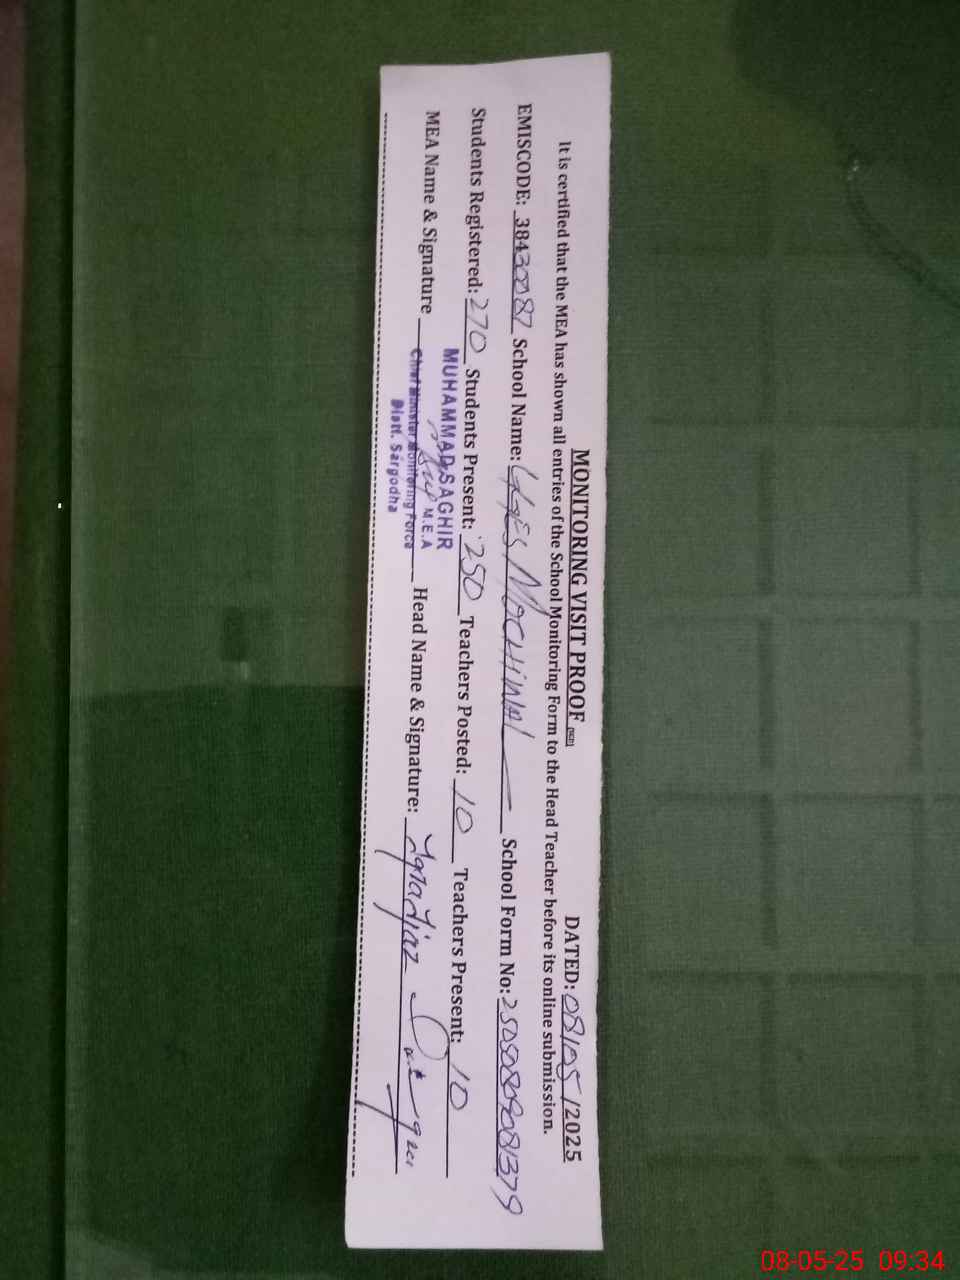 MONITORING VISIT PROOF
DATED: 08/05/2025
It is certified that the MEA has shown all entries of the School Monitoring Form to the Head Teacher before its online submission.
EMISCODE: 38430087 School Name: MOCHIWAL School Form No:
Students Registered: 270 Students Present: 250 Teachers Posted: 10 Teachers Present: 10
MEA Name & Signature Head Name & Signature:
MUHAMMAD SAGHIR
M.E.A
Chief Minister Monitoring Force
Distt. Sargodha
08-05-25 09:34